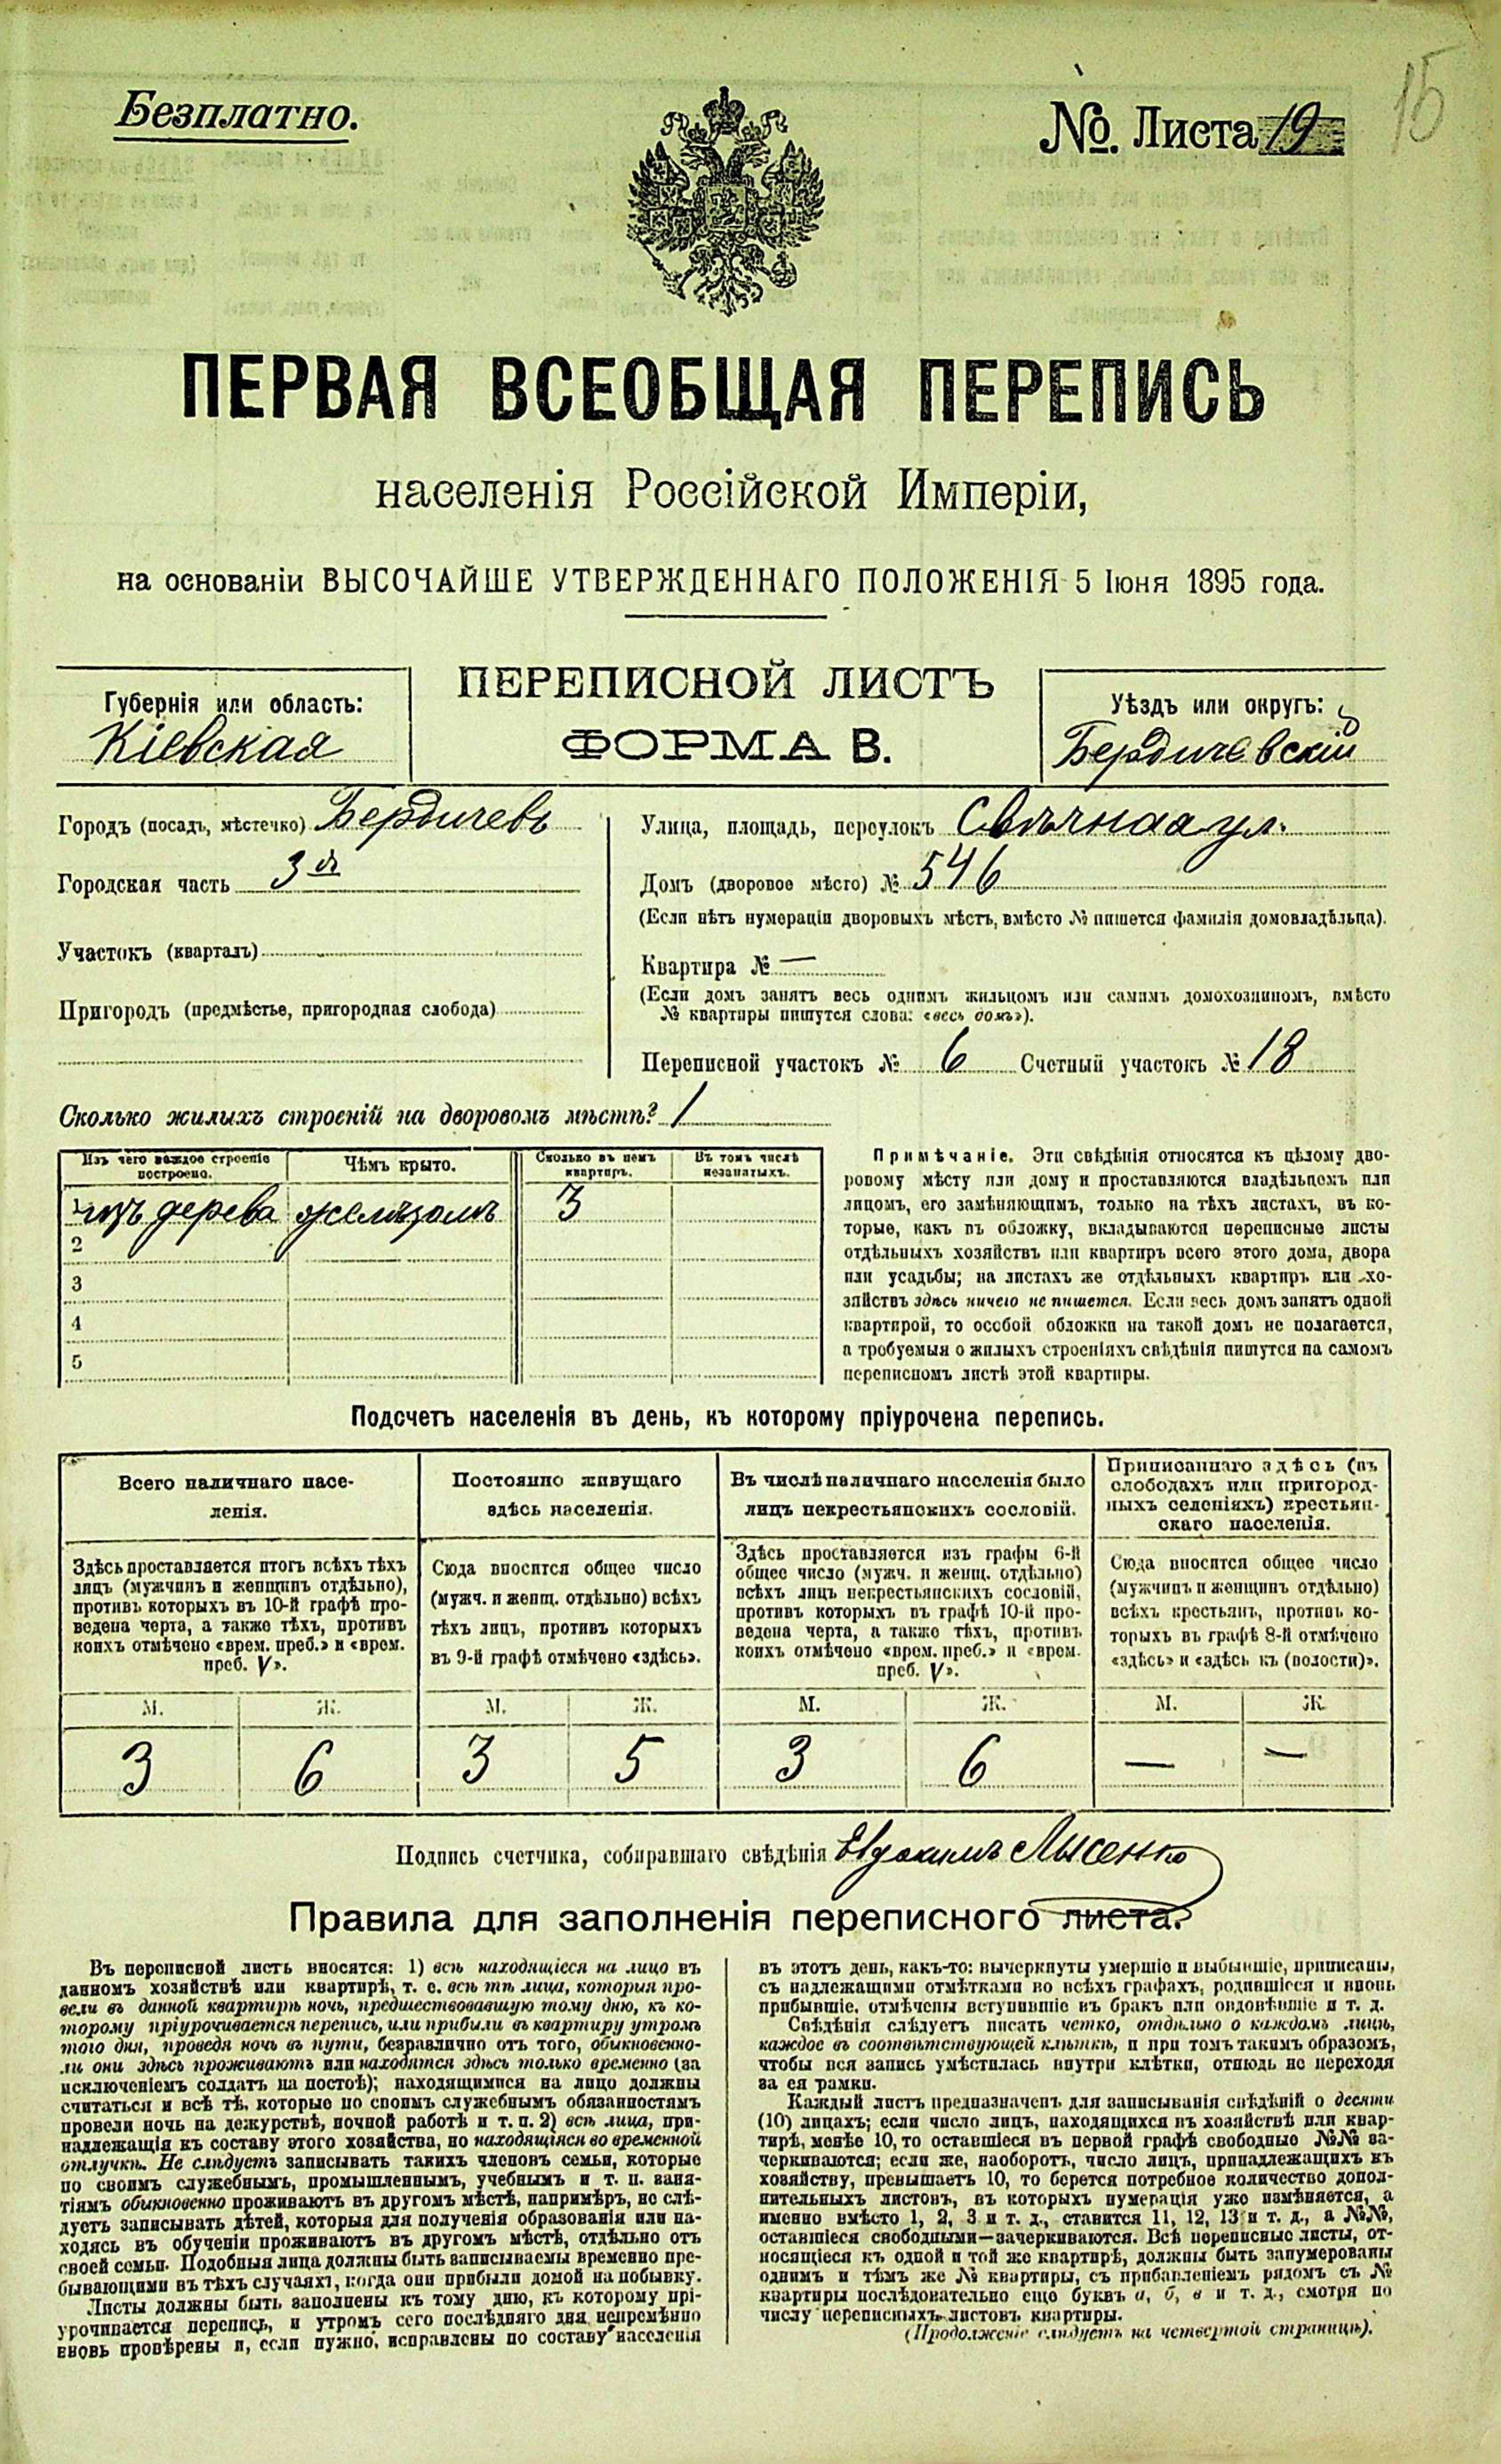 15
Безплатно.
№. Листа 19
ПЕРВАЯ ВСЕОБЩАЯ ПЕРЕПИСЬ
населенія Россійской Имперіи,
на основаніи ВЫСОЧАЙШЕ УТВЕРЖДЕННАГО ПОЛОЖЕНІЯ 5 Іюня 1895 года.
Губернія или область:
Кіевская
ПЕРЕПИСНОЙ ЛИСТЪ
ФОРМА В.
Уѣздъ или округъ:
Бердичевскій
Городъ (посадъ, мѣстечко) Бердичевъ
Городская часть 3я
Участокъ (кварталъ)
Пригородъ (предмѣстье, пригородная слобода)
Улица, площадь, переулокъ Свѣчная ул.
Домъ (дворовое мѣсто) № 546
(Если нѣтъ нумераціи дворовыхъ мѣстъ, вмѣсто № пишется фамилія домовладѣльца).
Квартира № —
(Если домъ занятъ весь однимъ жильцомъ или самимъ домохозяиномъ, вмѣсто
№ квартиры пишутся слова: «весь домъ»).
Переписной участокъ № 6 Счетный участокъ № 18
Сколько жилыхъ строеній на дворовомъ мѣстѣ? 1
Изъ чего каждое строеніе построено.
Чѣмъ крыто.
Сколько въ немъ квартиръ.
Въ томъ числѣ незанятыхъ.
1 изъ дерева желѣзомъ 3
2
3
4
5
Примѣчаніе. Эти свѣдѣнія относятся къ цѣлому дво-
ровому мѣсту или дому и проставляются владѣльцемъ или
лицомъ, его замѣняющимъ, только на тѣхъ листахъ, въ ко-
торые, какъ въ обложку, вкладываются переписные листы
отдѣльныхъ хозяйствъ или квартиръ всего этого дома, двора
или усадьбы; на листахъ же отдѣльныхъ квартиръ или хо-
зяйствъ здѣсь ничего не пишется. Если весь домъ занятъ одной
квартирой, то особой обложки на такой домъ не полагается,
а требуемыя о жилыхъ строеніяхъ свѣдѣнія пишутся на самомъ
переписномъ листѣ этой квартиры.
Подсчетъ населенія въ день, къ которому пріурочена перепись.
Всего наличнаго насе-
ленія.
Здѣсь проставляется итогъ всѣхъ тѣхъ
лицъ (мужчинъ и женщинъ отдѣльно),
противъ которыхъ въ 10-й графѣ про-
ведена черта, а также тѣхъ, противъ
коихъ отмѣчено «врем. преб.» и «врем.
преб. V».
М. Ж.
3 6
Постоянно живущаго
здѣсь населенія.
Сюда вносится общее число
(мужч. и женщ. отдѣльно) всѣхъ
тѣхъ лицъ, противъ которыхъ
въ 9-й графѣ отмѣчено «здѣсь».
М. Ж.
3 5
Въ числѣ наличнаго населенія было
лицъ некрестьянскихъ сословій.
Здѣсь проставляется изъ графы 6-й
общее число (мужч. и женщ. отдѣльно)
всѣхъ лицъ некрестьянскихъ сословій,
противъ которыхъ въ графѣ 10-й про-
ведена черта, а также тѣхъ, противъ
коихъ отмѣчено «врем. преб.» и «врем.
преб. V».
М. Ж.
3 6
Приписаннаго здѣсь (въ
слободахъ или пригород-
ныхъ селеніяхъ) крестьян-
скаго населенія.
Сюда вносится общее число
(мужчинъ и женщинъ отдѣльно)
всѣхъ крестьянъ, противъ ко-
торыхъ въ графѣ 8-й отмѣчено
«здѣсь» и «здѣсь къ (волости)».
М. Ж.
— —
Подпись счетчика, собиравшаго свѣдѣнія Евдокимъ Лысенко
Правила для заполненія переписного листа.
Въ переписной листъ вносятся: 1) всѣ находящіеся на лицо въ
данномъ хозяйствѣ или квартирѣ, т. е. всѣ тѣ лица, которыя про-
вели въ данной квартирѣ ночь, предшествовавшую тому дню, къ ко-
торому пріурочивается перепись, или прибыли въ квартиру утромъ
того дня, проведя ночь въ пути, безразлично отъ того, обыкновенно-
ли они здѣсь проживаютъ или находятся здѣсь только временно (за
исключеніемъ солдатъ на постоѣ); находящимися на лицо должны
считаться и всѣ тѣ, которые по своимъ служебнымъ обязанностямъ
провели ночь на дежурствѣ, ночной работѣ и т. п. 2) всѣ лица, при-
надлежащія къ составу этого хозяйства, но находящіяся во временной
отлучкѣ. Не слѣдуетъ записывать такихъ членовъ семьи, которые
по своимъ служебнымъ, промышленнымъ, учебнымъ и т. п. заня-
тіямъ обыкновенно проживаютъ въ другомъ мѣстѣ, напримѣръ, не слѣ-
дуетъ записывать дѣтей, которыя для полученія образованія или на-
ходясь въ обученіи проживаютъ въ другомъ мѣстѣ, отдѣльно отъ
своей семьи. Подобныя лица должны быть записываемы временно пре-
бывающими въ тѣхъ случаяхъ, когда они прибыли домой на побывку.
Листы должны быть заполнены къ тому дню, къ которому прі-
урочивается перепись, и утромъ сего послѣдняго дня непремѣнно
вновь провѣрены и, если нужно, исправлены по составу населенія
въ этотъ день, какъ-то: вычеркнуты умершіе и выбывшіе, приписаны,
съ надлежащими отмѣтками во всѣхъ графахъ, родившіеся и вновь
прибывшіе, отмѣчены вступившіе въ бракъ или овдовѣвшіе и т. д.
Свѣдѣнія слѣдуетъ писать четко, отдѣльно о каждомъ лицѣ,
каждое въ соотвѣтствующей клѣткѣ, и при томъ такимъ образомъ,
чтобы вся запись умѣстилась внутри клѣтки, отнюдь не переходя
за ея рамки.
Каждый листъ предназначенъ для записыванія свѣдѣній о десяти
(10) лицахъ; если число лицъ, находящихся въ хозяйствѣ или квар-
тирѣ, менѣе 10, то оставшіеся въ первой графѣ свободные №№ за-
черкиваются; если же, наоборотъ, число лицъ, принадлежащихъ къ
хозяйству, превышаетъ 10, то берется потребное количество допол-
нительныхъ листовъ, въ которыхъ нумерація уже измѣняется, а
именно вмѣсто 1, 2, 3 и т. д., ставится 11, 12, 13 и т. д., а №№,
оставшіеся свободными—зачеркиваются. Всѣ переписные листы, от-
носящіеся къ одной и той же квартирѣ, должны быть занумерованы
однимъ и тѣмъ же № квартиры, съ прибавленіемъ рядомъ съ №
квартиры послѣдовательно еще буквъ а, б, в и т. д., смотря по
числу переписныхъ листовъ квартиры.
(Продолженіе слѣдуетъ на четвертой страницѣ).